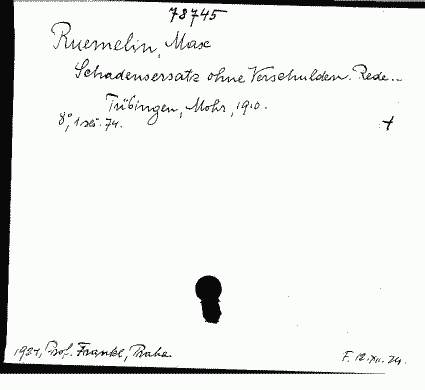 78745
Ruemelin, Max
Schadensersatz ohne Verschulden. Rede...
Tübingen, Mohr, 1910.
8°, 74.
+
1921, Prof. Frankl, Praha
F. 12.XII.24.